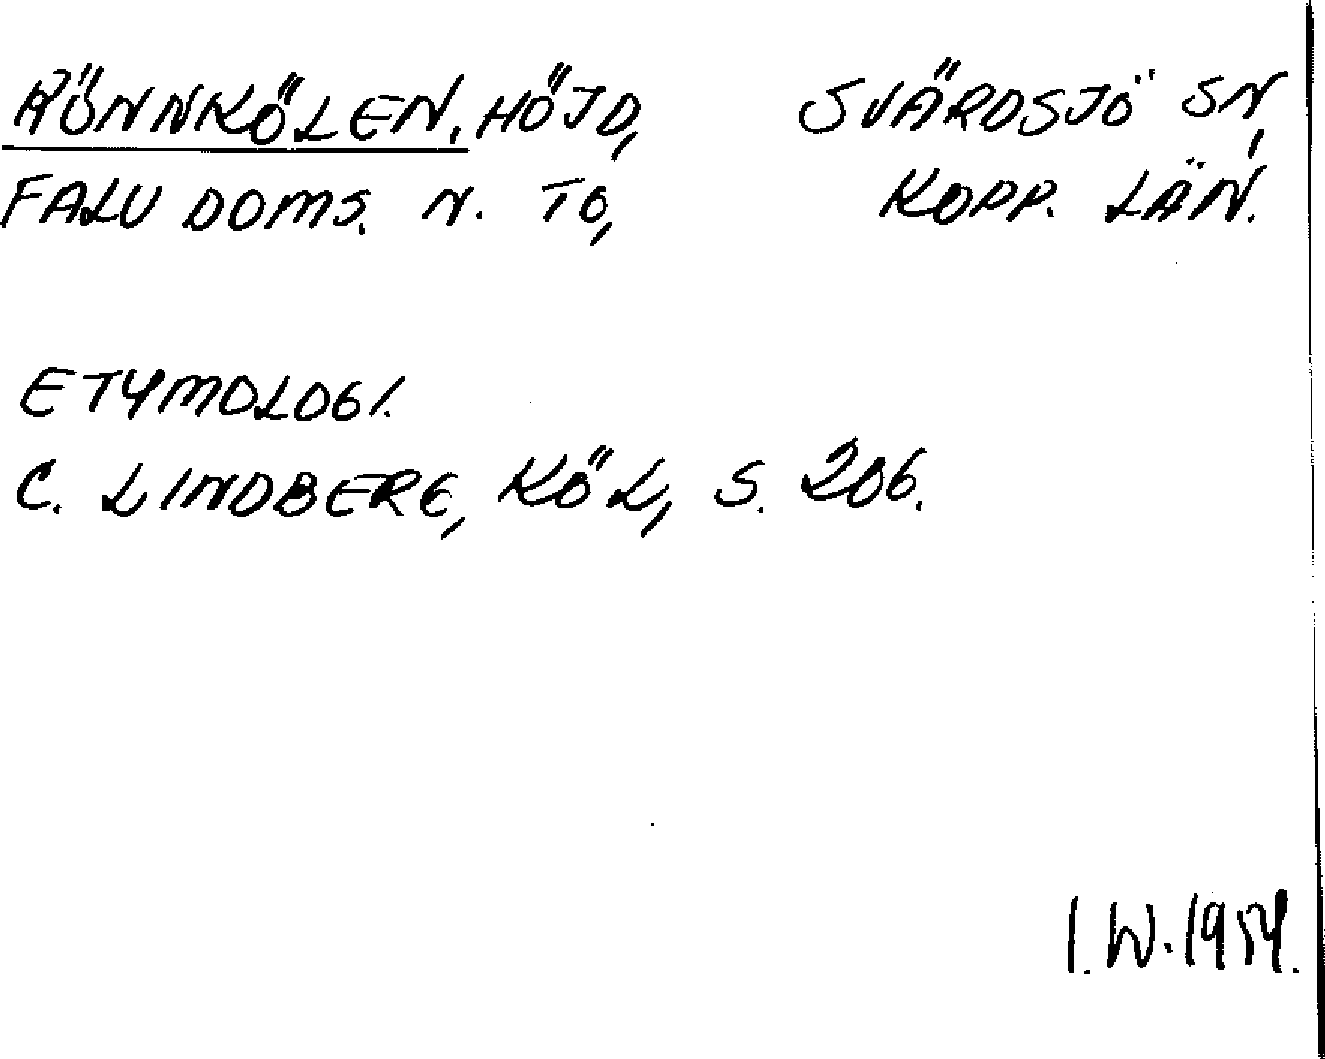 RÖNNKÖLEN, HÖJD, SVÄRDSJÖ SN,
FALU DOMS. N. TG, KOPP. LÄN.
ETYMOLOGI.
C. LINDBERG, KÖL, S. 206.
I. W. 1954.